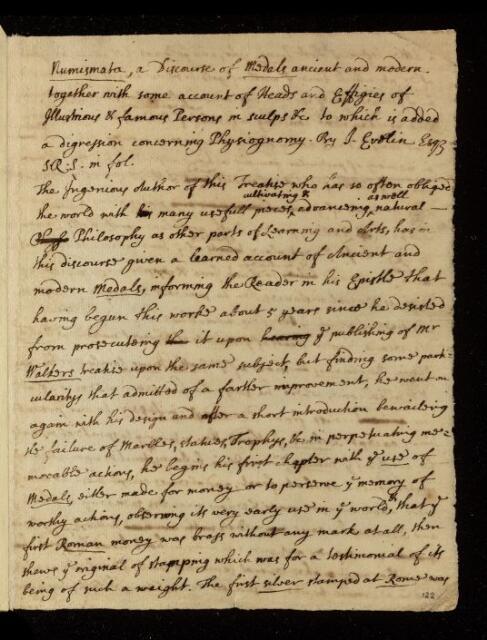 Numismata, a Discourse of Medals ancient and modern.
together with some account of Heads and Effigies of
Illustrious & famous Persons in sculps &c to which is added
a digression concerning Physiognomy. By J. Evelin Esqz
S.R.S. in fol.
The Ingenious Author of this Treatise who has so often obliged
cultivating & as well
the world with his many usefull pieces, advancing natural
Philosophy as other parts of Learning and Arts, has in
this discourse given a learned account of Ancient and
modern Medals, informing the Reader in his Epistle that
having begun this worke about 5 years since he desisted
from prosecuteing the it upon hearing ye publishing of Mr
Walkers treatise upon the same subject, but finding some part=
cularitys that admitted of a farther improvement, he went on
again with his design and after a short introduction bewaileing
the failure of Marbles, statues, Trophys, &c in perpetuating me=
morable actions, he begins his first chapter with ye use of
Medals, either made for money or to perserve ye memory of
worthy actions, observing its very early use in ye world, that ye
first Roman money was brass without any mark at all, then
shews ye original of stamping which was for a testimonial of its
being of such a weight. The first silver stamped at Rome was
122